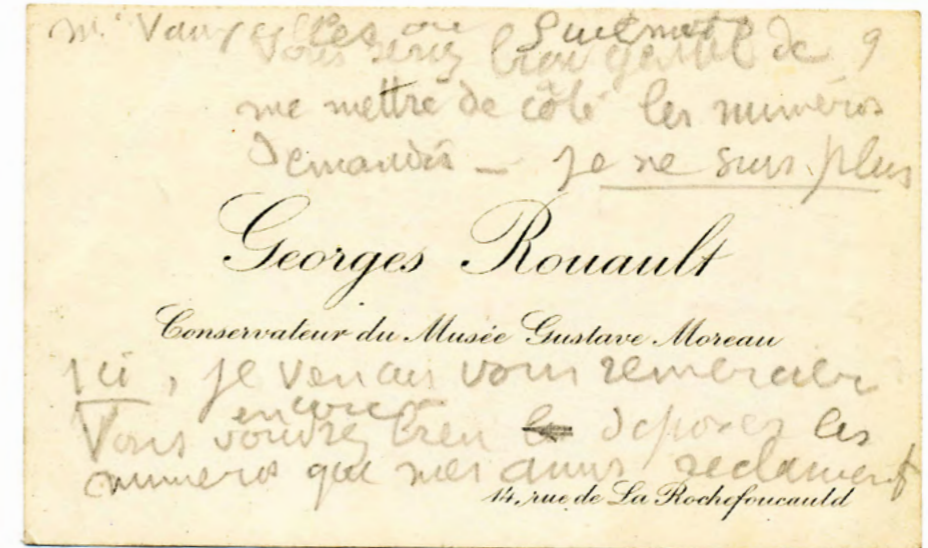 Mr Vauxcelles ou Guenne
Vous seriez bien gentil de
me mettre de côté les numéros
demandés – je ne suis plus
Georges Rouault
Conservateur du Musée Gustave Moreau
ici, je venais vous remercier
encore
Vous voudrez bien déposer les
numéros que mes amis réclament
14, rue de La Rochefoucauld